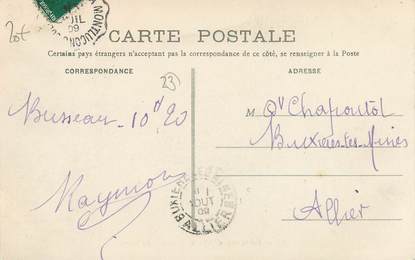 CARTE POSTALE
Certains pays étrangers n'acceptant pas la correspondance de ce côté, se renseigner à la Poste
CORRESPONDANCE
ADRESSE
23
Busseau - 10 d 20
Raymond
M Chapoutot
Buxières-les-Mines
Allier
MONTLUCON
09
BUXIERES-LES-MINES
1
AOUT
09
ALLIER